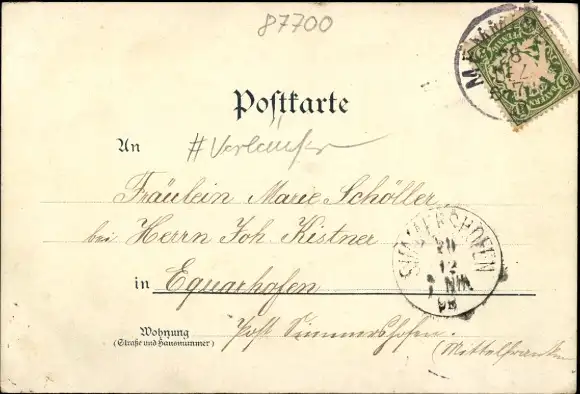 87700
Postkarte
An
#Vorläufer
Fräulein Marie Schöller
bei Herrn Joh. Kistner
in Equarhofen
Wohnung
(Straße und Hausnummer)
Post Simmershofen.
(Mittelfranken
SIMMERSHOFEN
20
12
NM
98